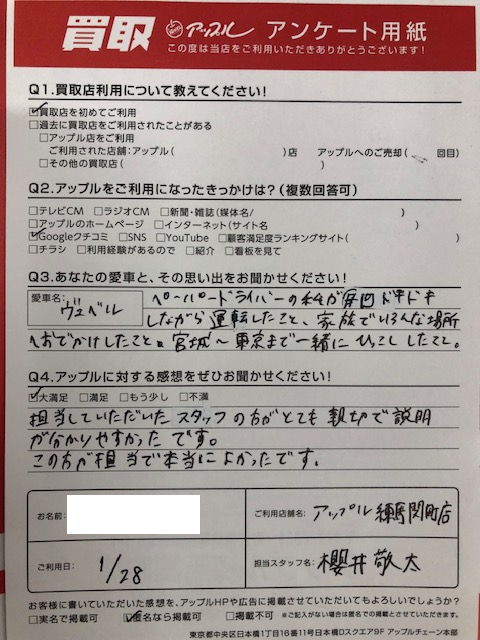 買取 アップル アンケート用紙
この度は当店をご利用いただきありがとうございます！
Q1.買取店利用について教えてください！
☑買取店を初めてご利用
□過去に買取店をご利用されたことがある
□アップル店をご利用
ご利用された店舗：アップル（ ）店 アップルへのご売却（ 回目）
□その他の買取店（ ）
Q2.アップルをご利用になったきっかけは？（複数回答可）
□テレビCM □ラジオCM □新聞・雑誌（媒体名/ ）
□アップルのホームページ □インターネット（サイト名 ）
☑Googleクチコミ □SNS □YouTube □顧客満足度ランキングサイト（ ）
□チラシ □利用経験があるので □紹介 □看板を見て
Q3.あなたの愛車と、その思い出をお聞かせください！
愛車名： ヴェゼル ペーパードライバーの私が毎回ドキドキ
しながら運転したこと、家族でいろんな場所
へおでかけしたこと。宮城〜東京まで一緒にひっこししたこと。
Q4.アップルに対する感想をぜひお聞かせください！
☑大満足 □満足 □もう少し □不満
担当していただいたスタッフの方がとても親切で説明
が分かりやすかったです。
この方が担当で本当によかったです。
お名前： ご利用店舗名： アップル練馬関町店
ご利用日： 1/28 担当スタッフ名： 櫻井敬太
お客様に書いていただいた感想を、アップルHPや広告に掲載させていただいてもよろしいでしょうか？
□実名で掲載可 ☑匿名なら掲載可 □掲載不可 ※ご記入がない場合は匿名での掲載とさせていただきます。
東京都中央区日本橋1丁目16番11号日本橋Dスクエア9F アップルチェーン本部